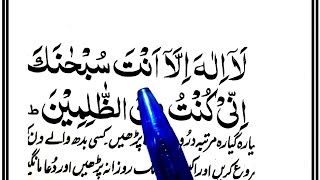 لَاۤ اِلٰهَ اِلَّاۤ اَنْتَ سُبْحٰنَكَ
اِنِّیْ كُنْتُ مِنَ الظّٰلِمِیْنَ ط
یارہ گیارہ مرتبہ پڑھیں۔ کسی بدھ والے دن
روع کریں اور روزانہ پڑھیں اور دُعا مانگیں